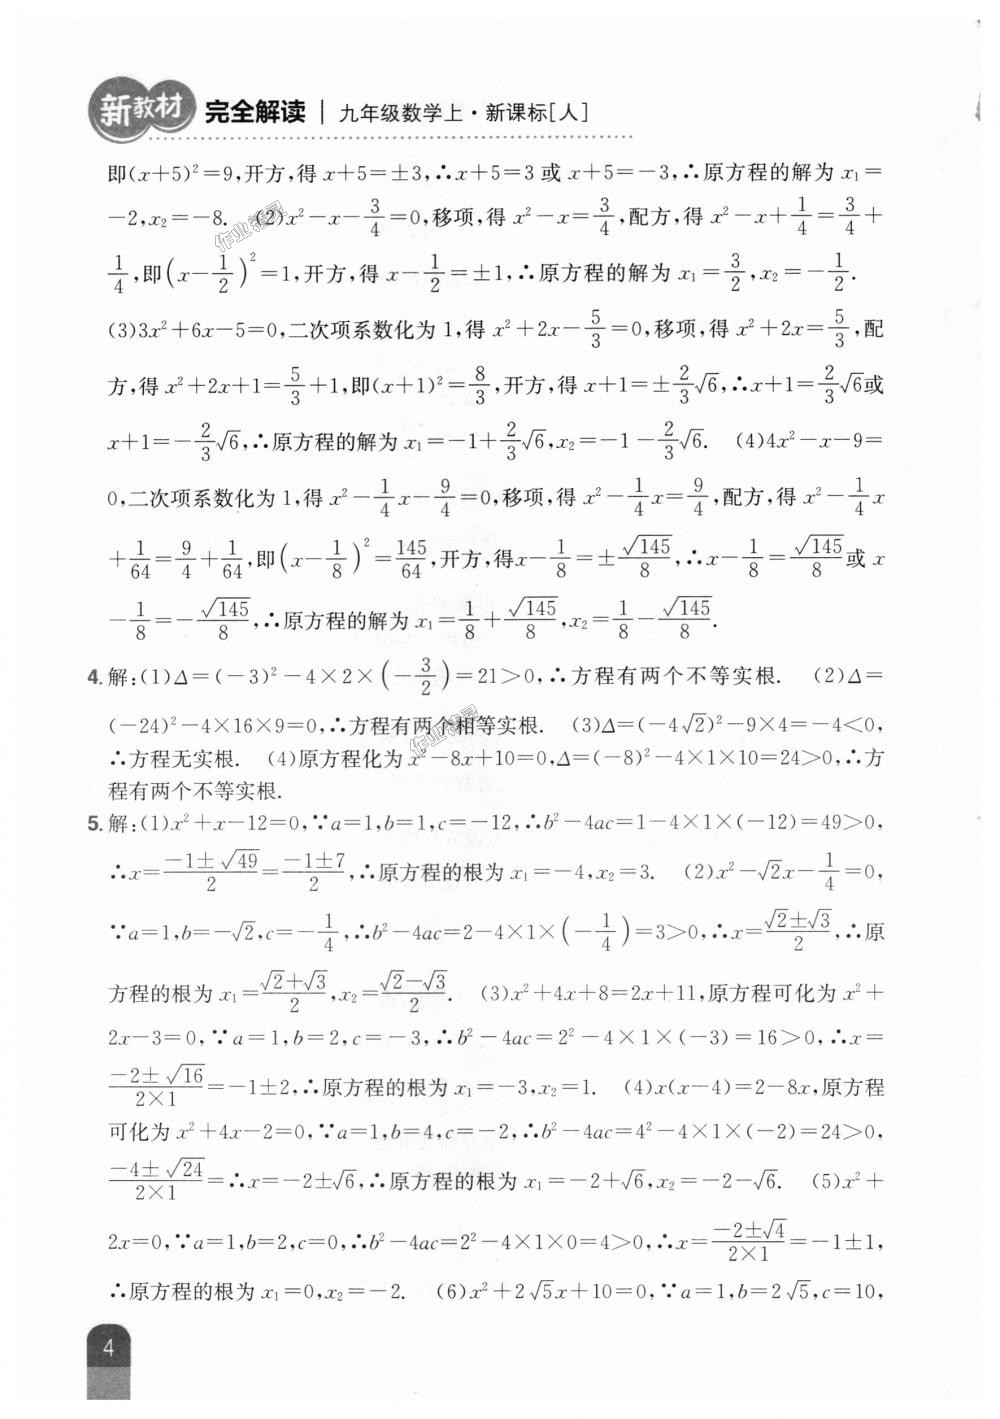 新教材 完全解读 | 九年级数学上·新课标[人]
即(x+5)²=9,开方,得 x+5=±3,∴x+5=3 或 x+5=-3,∴原方程的解为 x₁=
-2,x₂=-8. (2)x²-x-3/4=0,移项,得 x²-x=3/4,配方,得 x²-x+1/4=3/4+
1/4,即(x-1/2)²=1,开方,得 x-1/2=±1,∴原方程的解为 x₁=3/2,x₂=-1/2.
(3)3x²+6x-5=0,二次项系数化为 1,得 x²+2x-5/3=0,移项,得 x²+2x=5/3,配
方,得 x²+2x+1=5/3+1,即(x+1)²=8/3,开方,得 x+1=±2/3√6,∴x+1=2/3√6或
x+1=-2/3√6,∴原方程的解为 x₁=-1+2/3√6,x₂=-1-2/3√6. (4)4x²-x-9=
0,二次项系数化为 1,得 x²-1/4x-9/4=0,移项,得 x²-1/4x=9/4,配方,得 x²-1/4x
+1/64=9/4+1/64,即(x-1/8)²=145/64,开方,得x-1/8=±√145/8,∴x-1/8=√145/8或 x
-1/8=-√145/8,∴原方程的解为 x₁=1/8+√145/8,x₂=1/8-√145/8.
4. 解:(1)Δ=(-3)²-4×2×(-3/2)=21>0,∴方程有两个不等实根. (2)Δ=
(-24)²-4×16×9=0,∴方程有两个相等实根. (3)Δ=(-4√2)²-9×4=-4<0,
∴方程无实根. (4)原方程化为 x²-8x+10=0,Δ=(-8)²-4×1×10=24>0,∴方
程有两个不等实根.
5. 解:(1)x²+x-12=0,∵a=1,b=1,c=-12,∴b²-4ac=1-4×1×(-12)=49>0,
∴x=(-1±√49)/2=(-1±7)/2,∴原方程的根为 x₁=-4,x₂=3. (2)x²-√2x-1/4=0,
∵a=1,b=-√2,c=-1/4,∴b²-4ac=2-4×1×(-1/4)=3>0,∴x=(√2±√3)/2,∴原
方程的根为 x₁=(√2+√3)/2,x₂=(√2-√3)/2. (3)x²+4x+8=2x+11,原方程可化为 x²+
2x-3=0,∵a=1,b=2,c=-3,∴b²-4ac=2²-4×1×(-3)=16>0,∴x=
(-2±√16)/(2×1)=-1±2,∴原方程的根为 x₁=-3,x₂=1. (4)x(x-4)=2-8x,原方程
可化为 x²+4x-2=0,∵a=1,b=4,c=-2,∴b²-4ac=4²-4×1×(-2)=24>0,
(-4±√24)/(2×1)=∴x=-2±√6,∴原方程的根为 x₁=-2+√6,x₂=-2-√6. (5)x²+
2x=0,∵a=1,b=2,c=0,∴b²-4ac=2²-4×1×0=4>0,∴x=(-2±√4)/(2×1)=-1±1,
∴原方程的根为 x₁=0,x₂=-2. (6)x²+2√5x+10=0,∵a=1,b=2√5,c=10,
4
作业精灵
作业精灵